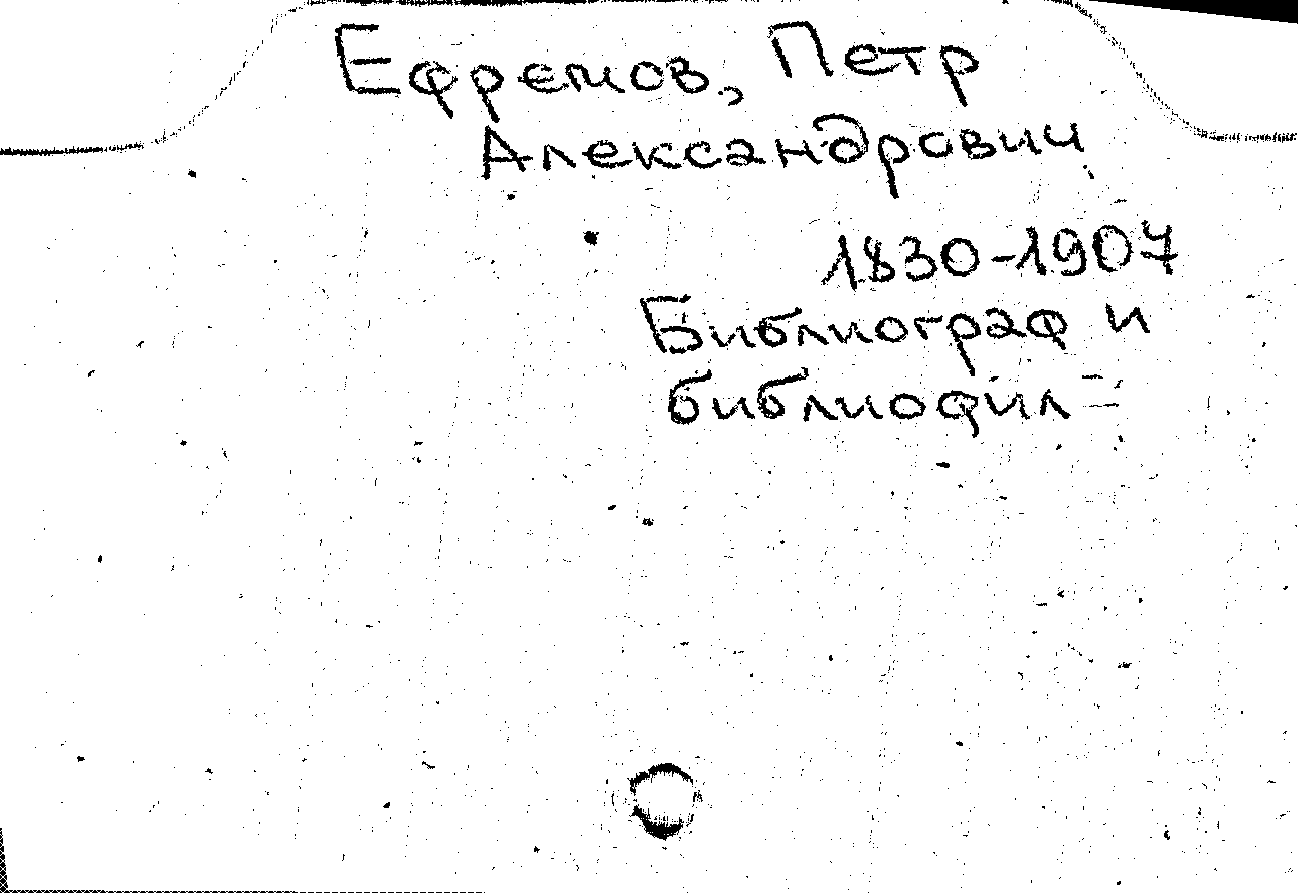 Ефремов, Петр
Александрович
1830-1907
Библиограф и
библиофил